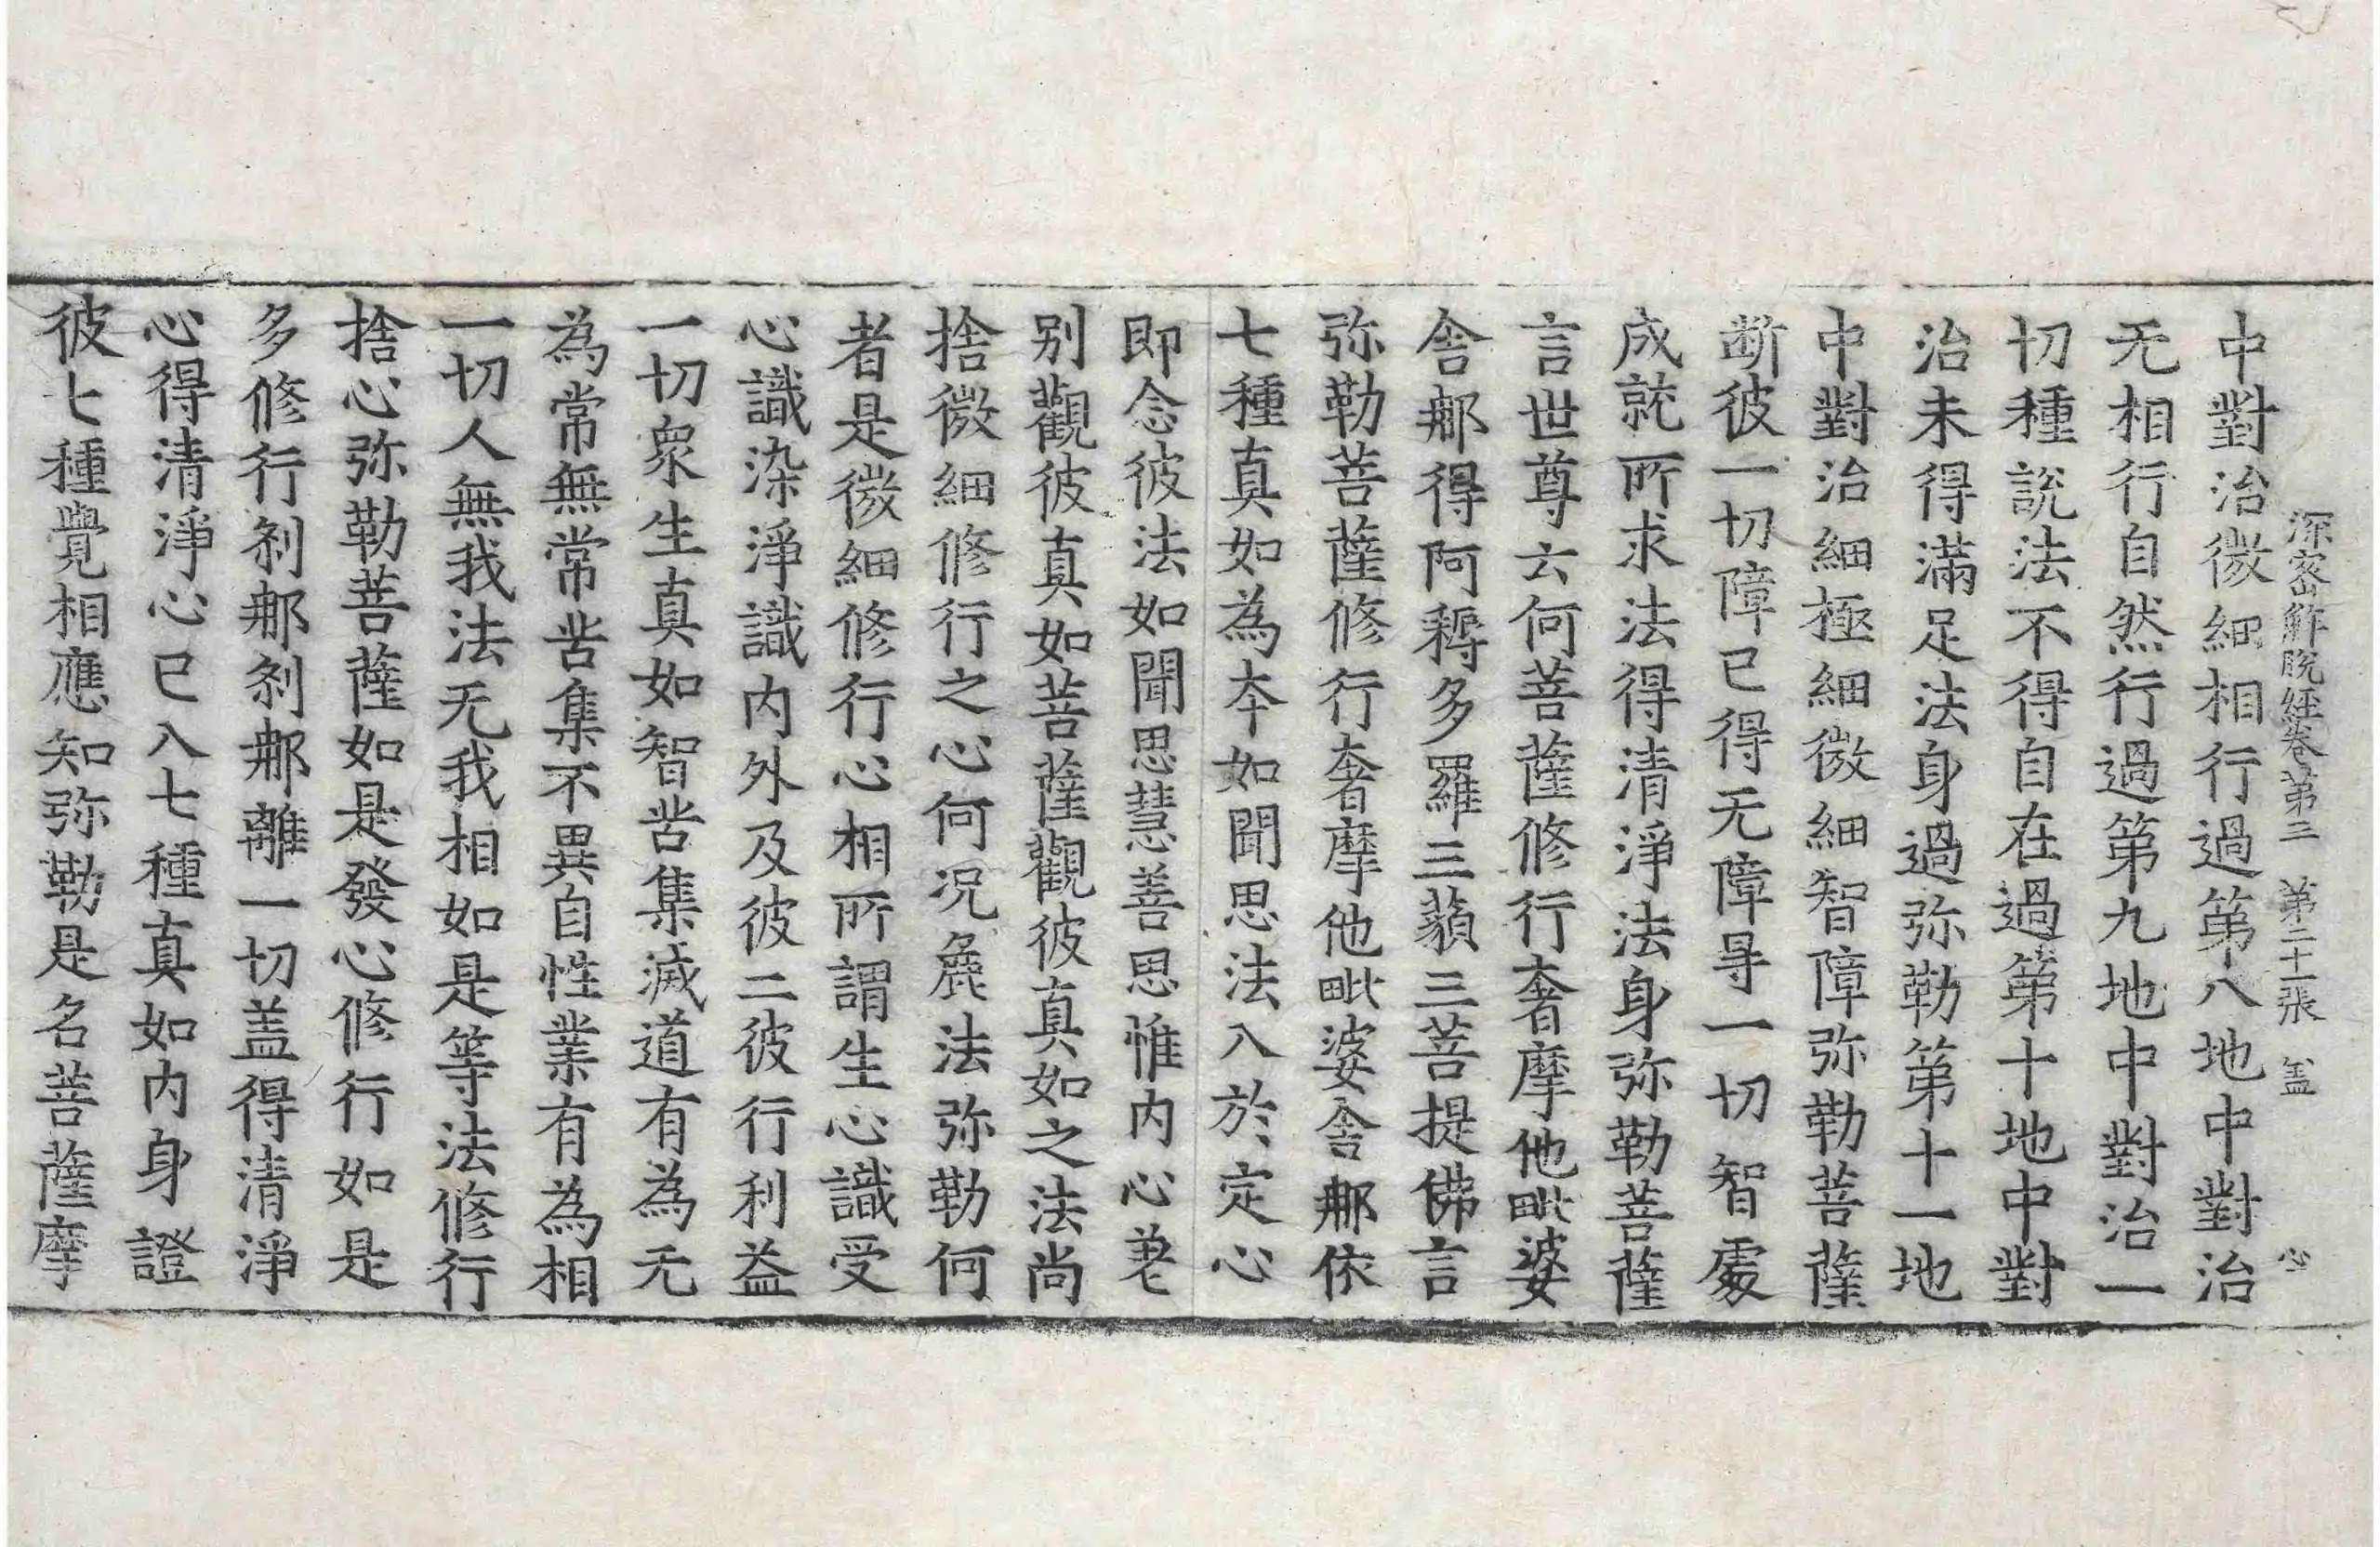 深密解脫經卷第三 第二十張 盖 心
中對治微細相行過第八地中對治
无相行自然行過第九地中對治一
切種說法不得自在過第十地中對
治未得滿足法身過弥勒第十一地
中對治細極細微細智障弥勒菩薩
断彼一切障已得无障㝵一切智處
成就所求法得清淨法身弥勒菩薩
言世尊云何菩薩修行奢摩他毗婆
舍那得阿耨多羅三藐三菩提佛言
弥勒菩薩修行奢摩他毗婆舍那依
七種真如為本如聞思法入於定心
即念彼法如聞思慧善思惟內心差
別觀彼真如菩薩觀彼真如之法尚
捨微細修行之心何況麁法弥勒何
者是微細修行心相所謂生心識受
心識染淨識內外及彼二彼行利益
一切衆生真如智苦集滅道有為无
為常無常苦集不異自性業有為相
一切人無我法无我相如是等法修行
捨心弥勒菩薩如是發心修行如是
多修行剎那剎那離一切盖得清淨
心得清淨心已入七種真如內身證
彼七種覺相應知弥勒是名菩薩摩